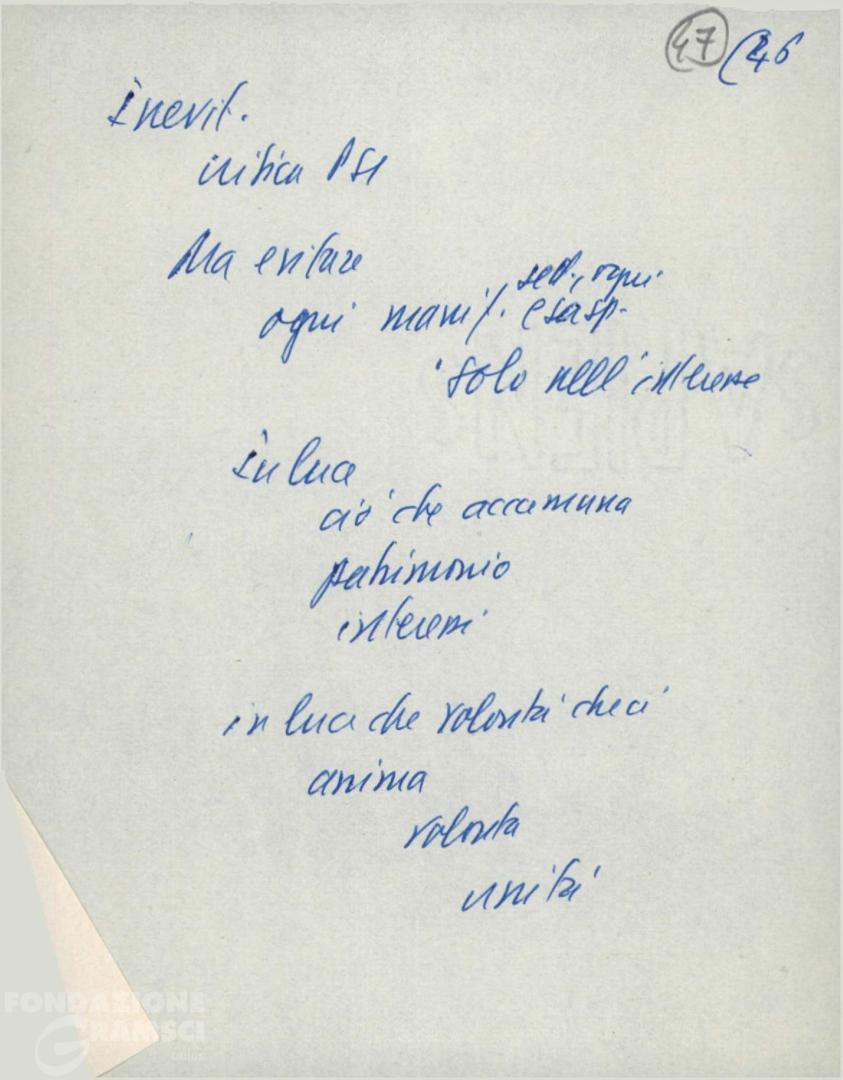 47 (46
Inevit.
critica PSI
Ma evitare
sett., ogni
ogni manif. esasp.
solo nell'interesse
In luce
ciò che accomuna
patrimonio
interessi
in luce che volontà che ci
anima
volontà
unità
FONDAZIONE
GRAMSCI